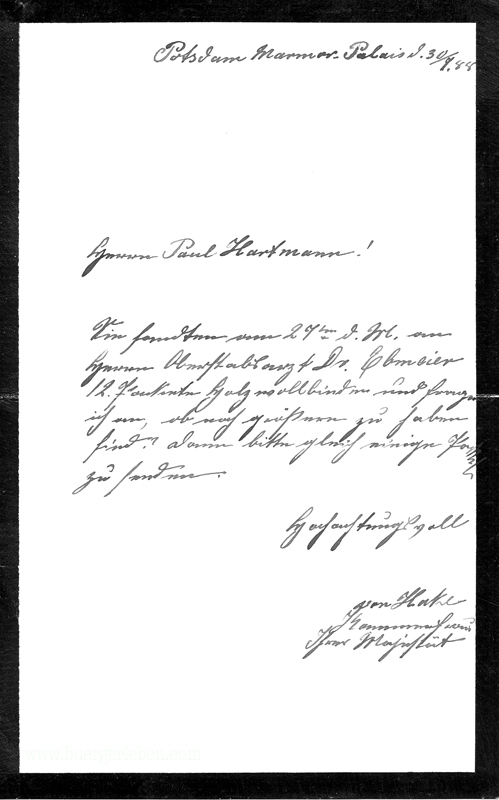 Potsdam Marmor-Palais d. 30/9. 88
Herrn Paul Hartmann!
Sie sandten am 27ten d. M. an
Herrn Oberstabsarzt Dr. Ebmeier
12. Packete Holzwollbinden und frage
ich an, ob noch größere zu haben
sind? Dann bitte gleich einige
zu senden.
Hochachtungsvoll
von Hake
Ihrer Majestät